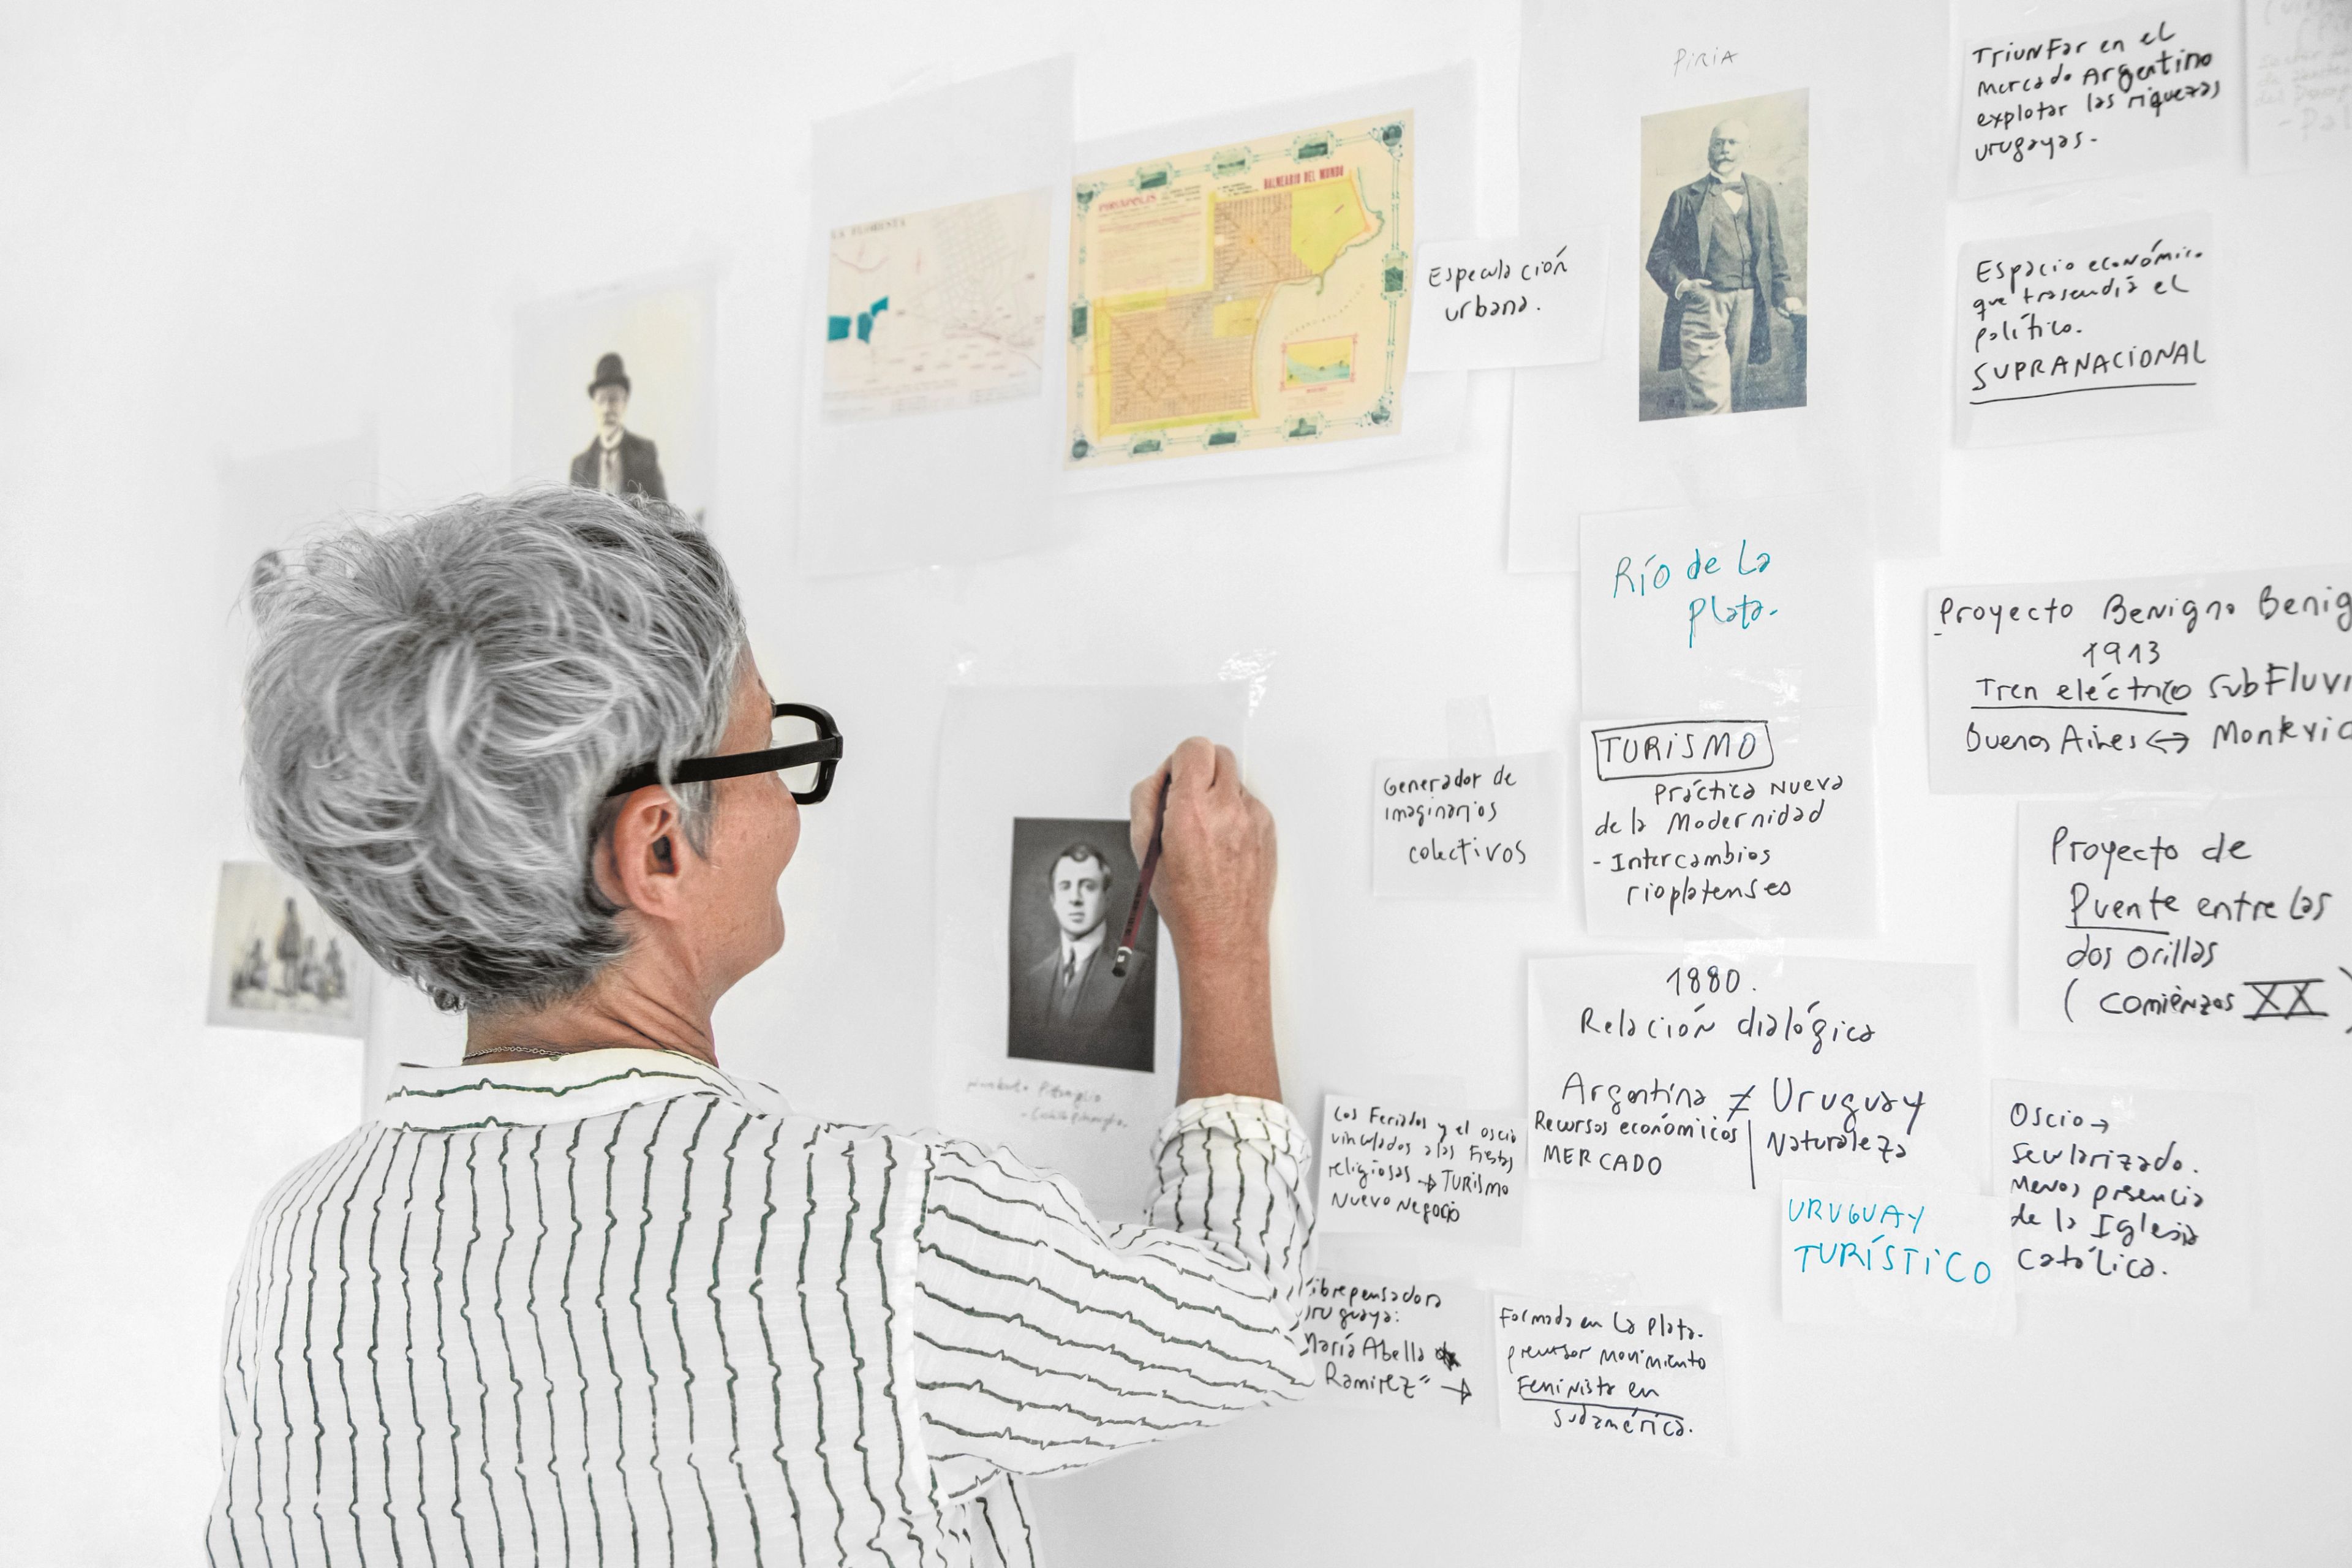 PIRIA
Triunfar en el
mercado Argentino
explotar las riquezas
urugayas.-
LA FLORESTA
PIRIAPOLIS
BALNEARIO DEL MUNDO
Especulación
urbana.
Espacio económico
que trasendiá el
político.
SUPRANACIONAL
Río de la
plata.-
Proyecto Benigno Benig
1913
Tren eléctrico subFluvi
Buenos Aires ↔ Montevid
TURISMO
Práctica Nueva
de la Modernidad
- Intercambios
rioplatenses
Generador de
imaginarios
colectivos
Proyecto de
Puente entre las
dos orillas
( comienzos XX )
1880.
Relación dialógica
Argentina ≠ Uruguay
Recursos económicos | Naturaleza
MERCADO
Los Feriados y el oscio
vinculados a las Fiestas
religiosas → TURISMO
Nuevo Negocio
Oscio →
Secularizado.
Menos presencia
de la Iglesia
Católica.
URUGUAY
TURÍSTICO
librepensadora
uruguaya:
María Abella
Ramirez" →
Formada en La Plata.
precursor movimiento
Feminista en
sudamérica.